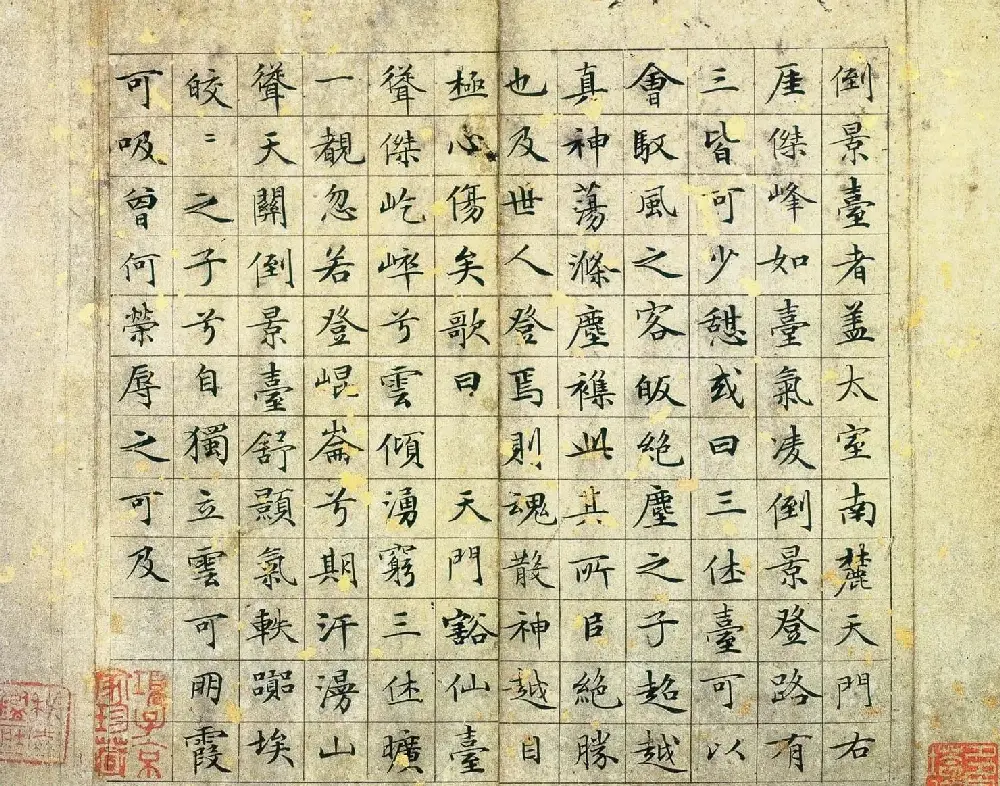 倒景臺者盖太室南麓天門右
厓傑峰如臺氣凌倒景登路有
三皆可少憇或曰三休臺可以
會馭風之客皈絶塵之子超越
真神蕩滌塵襟此其所臣絶勝
也及世人登焉則魂散神越目
極心傷矣歌曰 天門豁仙臺
聳傑屹崒兮雲傾湧窮三休曠
一覩忽若登崐崙兮期汗漫山
聳天關倒景臺舒顥氣軼嚻埃
皎〻之子兮自獨立雲可朋霞
可吸曾何榮辱之可及
項子京家珍藏